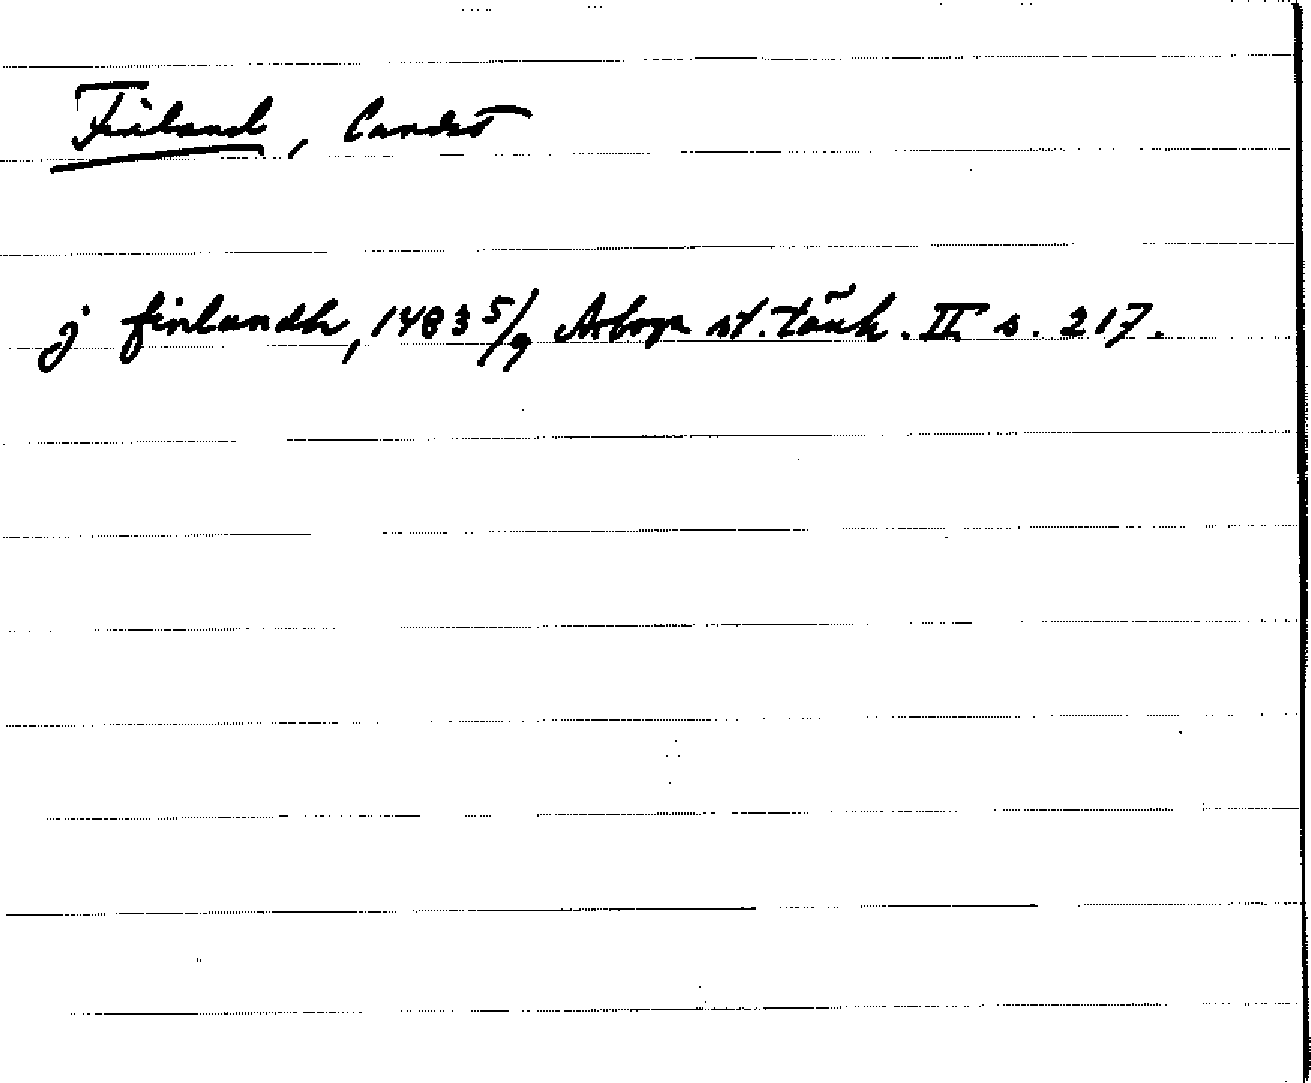 Finland, landet
j finlandh, 1483 5/9 Arboga st. tänk. II s. 217.